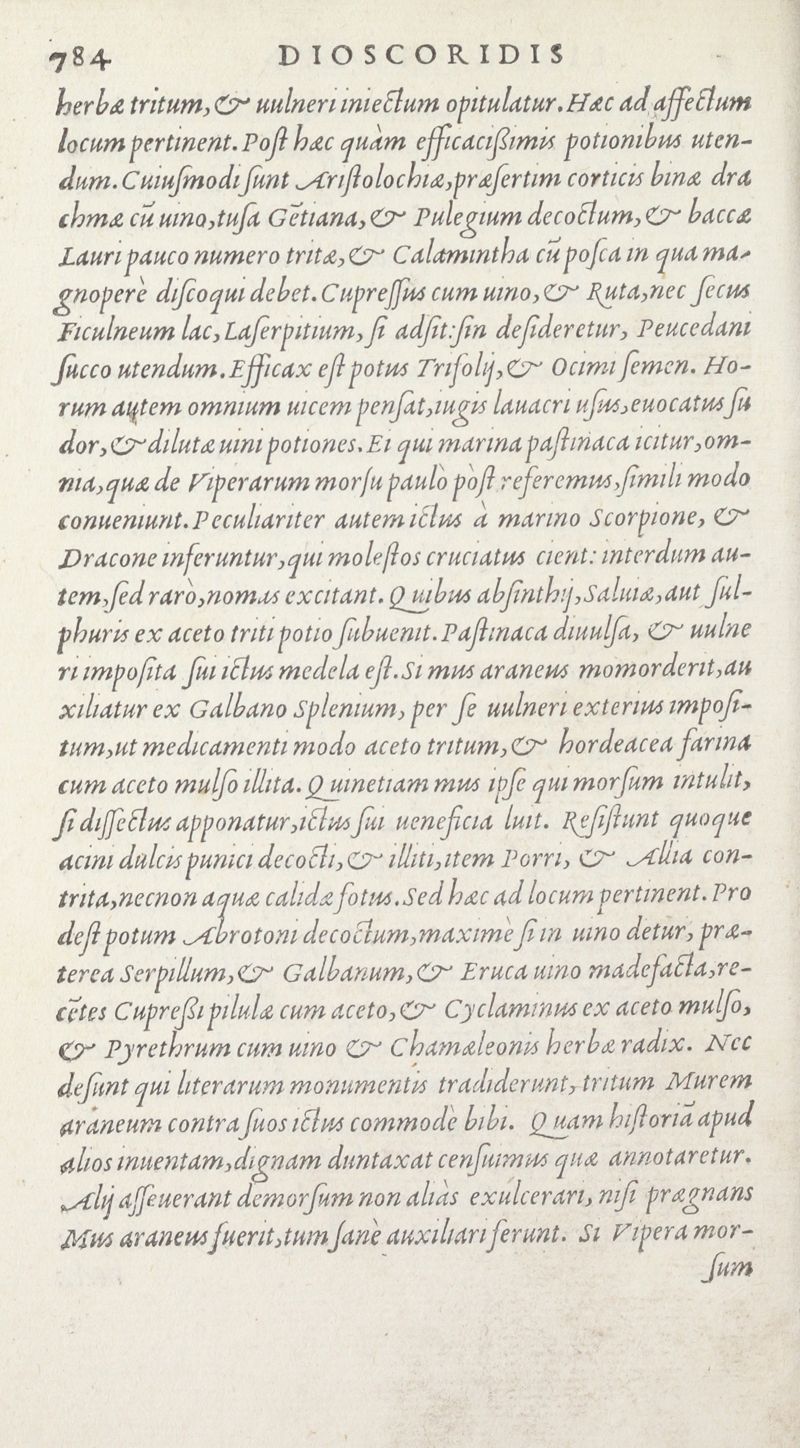 784 DIOSCORIDIS
herbæ tritum, & uulneri iniectum opitulatur. Hæc ad affectum
locum pertinent. Post hæc quàm efficacißimis potionibus uten-
dum. Cuiusmodi sunt Aristolochiæ, præsertim corticis binæ dra
chmæ cū uino, tusa Gētiana, & Pulegium decoctum, & baccæ
Lauri pauco numero tritæ, & Calamintha cū posca in qua ma-
gnoperè discoqui debet. Cupressus cum uino, & Ruta, nec secus
Ficulneum lac, Laserpitium, si adsit: sin desideretur, Peucedani
succo utendum. Efficax est potus Trifolij, & Ocimi semen. Ho-
rum autem omnium uicem pensat, iugis lauacri usus, euocatus su
dor, & dilutæ uini potiones. Ei qui marina pastinaca icitur, om-
nia, quæ de Viperarum morsu paulò pòst referemus, simili modo
conueniunt. Peculiariter autem ictus à marino Scorpione, &
Dracone inferuntur, qui molestos cruciatus cient: interdum au-
tem, sed rarò, nomas excitant. Quibus absinthij, Saluiæ, aut sul-
phuris ex aceto triti potio subuenit. Pastinaca diuulsa, & uulne
ri imposita sui ictus medela est. Si mus araneus momorderit, au
xiliatur ex Galbano Splenium, per se uulneri exterius imposi-
tum, ut medicamenti modo aceto tritum, & hordeacea farina
cum aceto mulso illita. Quinetiam mus ipse qui morsum intulit,
si dissectus apponatur, ictus sui ueneficia luit. Resistunt quoque
acini dulcis punici decocti, & illiti, item Porri, & Allia con-
trita, necnon aquæ calidæ fotus. Sed hæc ad locum pertinent. Pro
dest potum Abrotoni decoctum, maximè si in uino detur, præ-
terea Serpillum, & Galbanum, & Eruca uino madefacta, re-
cētes Cupreßi pilulæ cum aceto, & Cyclaminus ex aceto mulso,
& Pyrethrum cum uino & Chamæleonis herbæ radix. Nec
desunt qui literarum monumentis tradiderunt, tritum Murem
aráneum contra suos ictus commodè bibi. Quam historiā apud
alios inuentam, dignam duntaxat censuimus quæ annotaretur.
Alij asseuerant demorsum non aliàs exulcerari, nisi prægnans
Mus araneus fuerit, tum sanè auxiliari ferunt. Si Vipera mor-
sum